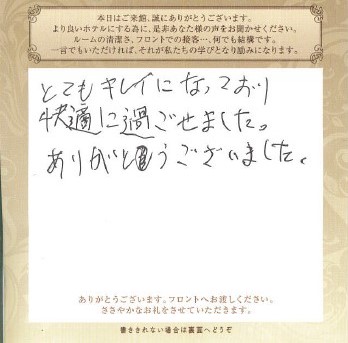 本日はご来館、誠にありがとうございます。
より良いホテルにする為に、是非あなた様の声をお聞かせください。
ルームの清潔さ、フロントでの接客…、何でも結構です。
一言でもいただければ、それが私たちの学びとなり励みになります。
とてもキレイになっており
快適に過ごせました。
ありがとうございました。
ありがとうございます。フロントへお渡しください。
ささやかなお礼をさせていただきます。
書ききれない場合は裏面へどうぞ